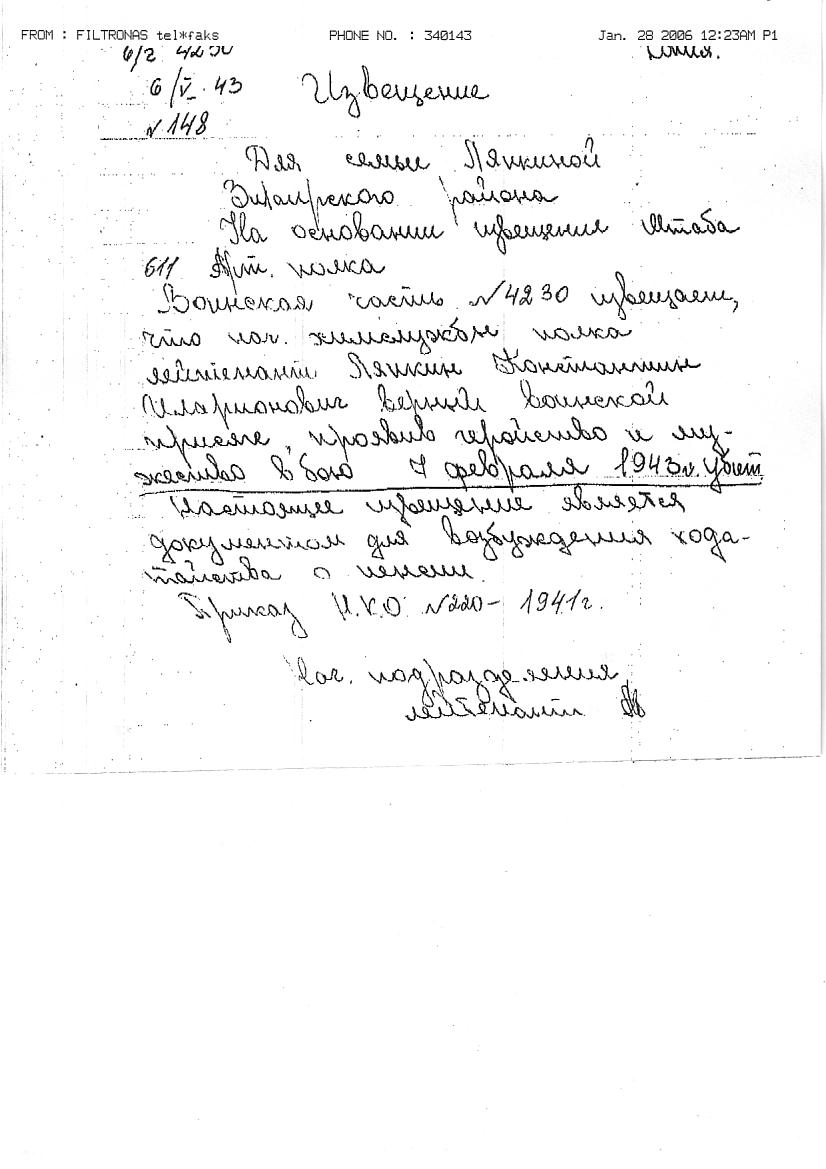 FROM : FILTRONAS tel*faks PHONE NO. : 340143 Jan. 28 2006 12:23AM P1
6/V. 43 Извещение
N 148
Для семьи Ляпкиной
района
На основании извещения Штаба
611 Арт. полка
Воинская часть N 4230 извещает,
что нач. химслужбы полка
лейтенант Ляпкин Константин
Иларионович верный воинской
присяге, проявив геройство и му-
жество в бою 7 февраля 1943 г. Убит
Настоящее извещение является
документом для возбуждения хода-
тайства о пенсии.
Приказ Н.К.О. N 220 - 1941 г.
Нач. подразделения
лейтенант